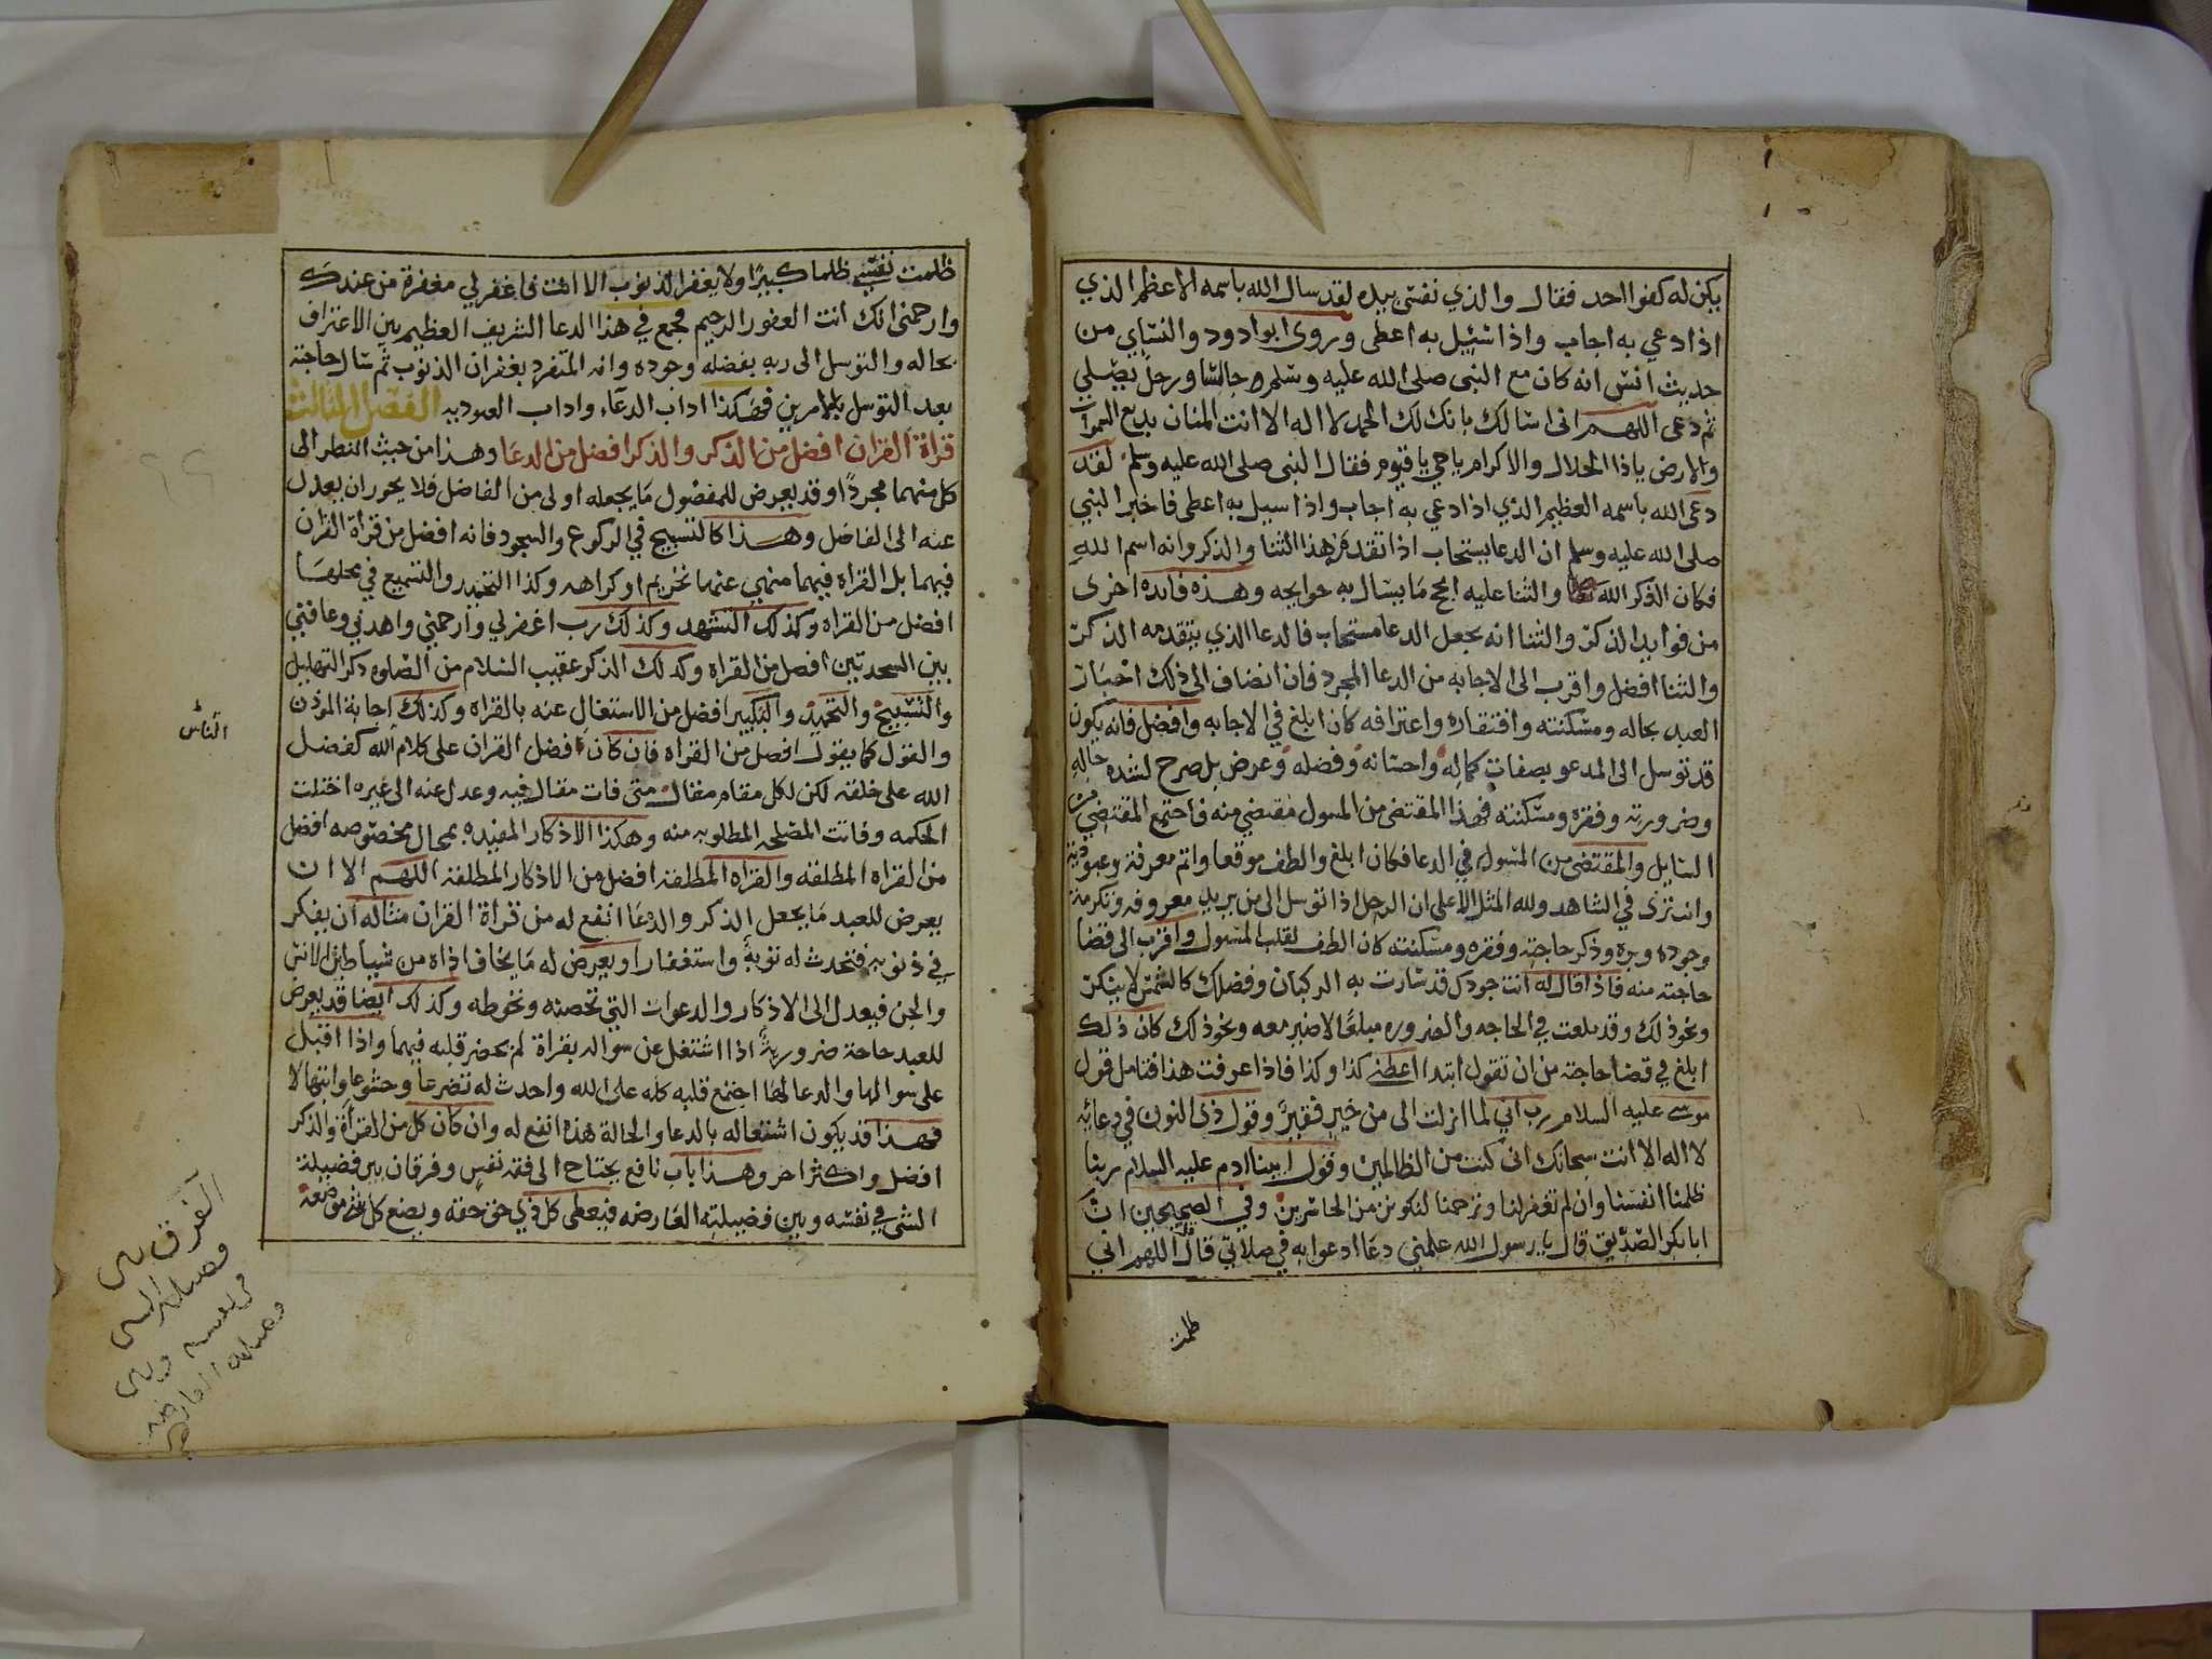 يكن له كفوا احد فقال والذي نفسي بيده لقد سال الله باسمه الاعظم الذي
اذا دعي به اجاب واذا سئيل به اعطى وروى ابوا دود والنساي من
حديث انس انه كان مع النبى صلى الله عليه وسلم جالسا ورجل يصلي
ثم دعى اللهم انى اسالك بانك لك الحمد لا اله الا انت المنان بديع السموات
والارض ياذا الجلال والاكرام ياحي ياقيوم فقال النبى صلى الله عليه وسلم لقد
دعى الله باسمه العظيم الذي اذا دعي به اجاب واذا سيل به اعطى فاخبر النبي
صلى الله عليه وسلم ان الدعا يستجاب اذا تقدمه هذا الثنا والذكر وانه اسم الله
فكان الذكر الله والثنا عليه انجح ما يسال به حوايجه وهذه فايده اخرى
من فوايد الذكر والثنا انه يجعل الدعا مستجاب فالدعا الذي يتقدمه الذكر
والثنا افضل واقرب الى الاجابه من الدعا المجرد فان انضاف الى ذلك اخبار
العبد بحاله ومسكنته وافتقاره واعترافه كان ابلغ في الاجابه وافضل فانه يكون
قد توسل الى المدعو بصفات كماله واحسانه وفضله وعرض بل صرح لشده حاله
وضرورته وفقره ومسكنته فهذا المقتضى من المسول مقتضي منه فاجتمع المقتضي من
السايل والمقتضى من المسول في الدعا فكان ابلغ والطف موقعا واتم معرفة وعبودية
وانت ترى في الشاهد ولله المثل الاعلى ان الرجل اذا توسل الى من يريد معروفه وتكرمة
وجوده وبره وذكر حاجته وفقره ومسكنته كان الطف لقلب المسول واقرب الى قضا
حاجته منه فاذا قال له انت جودك قد سارت به الركبان وفضلك كالشمس لا ينكر
ونحو ذلك وقد بلغت في الحاجه والضروره مبلغا لا صبر معه ونحو ذلك كان ذلك
ابلغ في قضا حاجته من ان تقول ابتدا اعطني كذا وكذا فاذا عرفت هذا فتامل قول
موسى عليه السلام رب اني لما انزلت الى من خير فقير وقول ذى النون في دعائه
لا اله الا انت سبحانك انى كنت من الظالمين وقول ابينا ادم عليه السلام ربنا
ظلمنا انفسنا وان لم تغفر لنا وترحمنا لنكونن من الخاسرين وفي الصحيحين ان
ابا بكر الصديق قال يا رسول الله علمني دعا ادعوا به في صلاتي قال قل اللهم اني
ظلمت
ظلمت نفسي ظلما كبيرا ولا يغفر الذنوب الا انت فاغفر لي مغفرة من عندك
وارحمنى انك انت الغفور الرحيم فجمع في هذا الدعا الشريف العظيم بين الاعتراف
بحاله والتوسل الى ربه بفضله وجوده وانه المتفرد بغفران الذنوب ثم سال حاجته
بعد التوسل بالامرين فهكذا اداب الدعاء واداب العبوديه الفصل الثالث
قراة القران افضل من الذكر والذكر افضل من الدعا وهذا من حيث النظر الى
كل منهما مجردا وقد يعرض للمفضول ما يجعله اولى من الفاضل فلا يجوز ان يعدل
عنه الى الفاضل وهذا كالتسبيح في الركوع والسجود فانه افضل من قراة القران
فيهما بل القراه فيهما منهي عنها تحريم او كراهه وكذا التحميد والتسميع في محلهما
افضل من القراه وكذلك التشهد وكذلك رب اغفر لي وارحمني واهدني وعافني
بين السجدتين افضل من القراه وكذلك الذكر عقيب السلام من الصلوه ذكر التهليل
والتسبيح والتحميد والتكبير افضل من الاستغال عنه بالقراه وكذلك اجابة الموذن
والقول كما يقول افضل من القراه فان كان افضل القران على كلام الله كفضل
الناس
الله على خلقه لكن لكل مقام مقال متى فات مقال فيه وعدل عنه الى غيره اختلت
الحكمه وفاتت المصلحه المطلوبه منه وهكذا الاذكار المقيده بمحال مخصوصه افضل
من القراه المطلقه والقراه المطلقه افضل من الاذكار المطلقه اللهم الا ان
يعرض للعبد ما يجعل الذكر والدعا انفع له من قراة القران مثاله ان يفكر
في ذنوبه فتحدث له توبة واستغفارا ويعرض له ما يخاف اذاه من شياطين الانس
والجن فيعدل الى الاذكار والدعوات التي تحصنه وتحوطه وكذلك ايضا قد يعرض
للعبد حاجة ضرورية اذا اشتغل عن سواله بقراة لم يحضر قلبه فيهما واذا اقبل
على سوالها والدعا لها اجتمع قلبه كله على الله واحدث له تضرعا وخشوعا وابتهالا
فهذا قد يكون اشتغاله بالدعا والحالة هذه انفع له وان كان كل من القراة والذكر
افضل واكثر اجر وهذا باب نافع يحتاج الى فقه نفس وفرقان بين فضيلة
الشى في نفسه وبين فضيلته العارضه فيعطى كل ذي حق حقه ويضع كل شي موضعه
الفرق بين
فضيلة الشي
في نفسه وبين
فضيلته العارضة